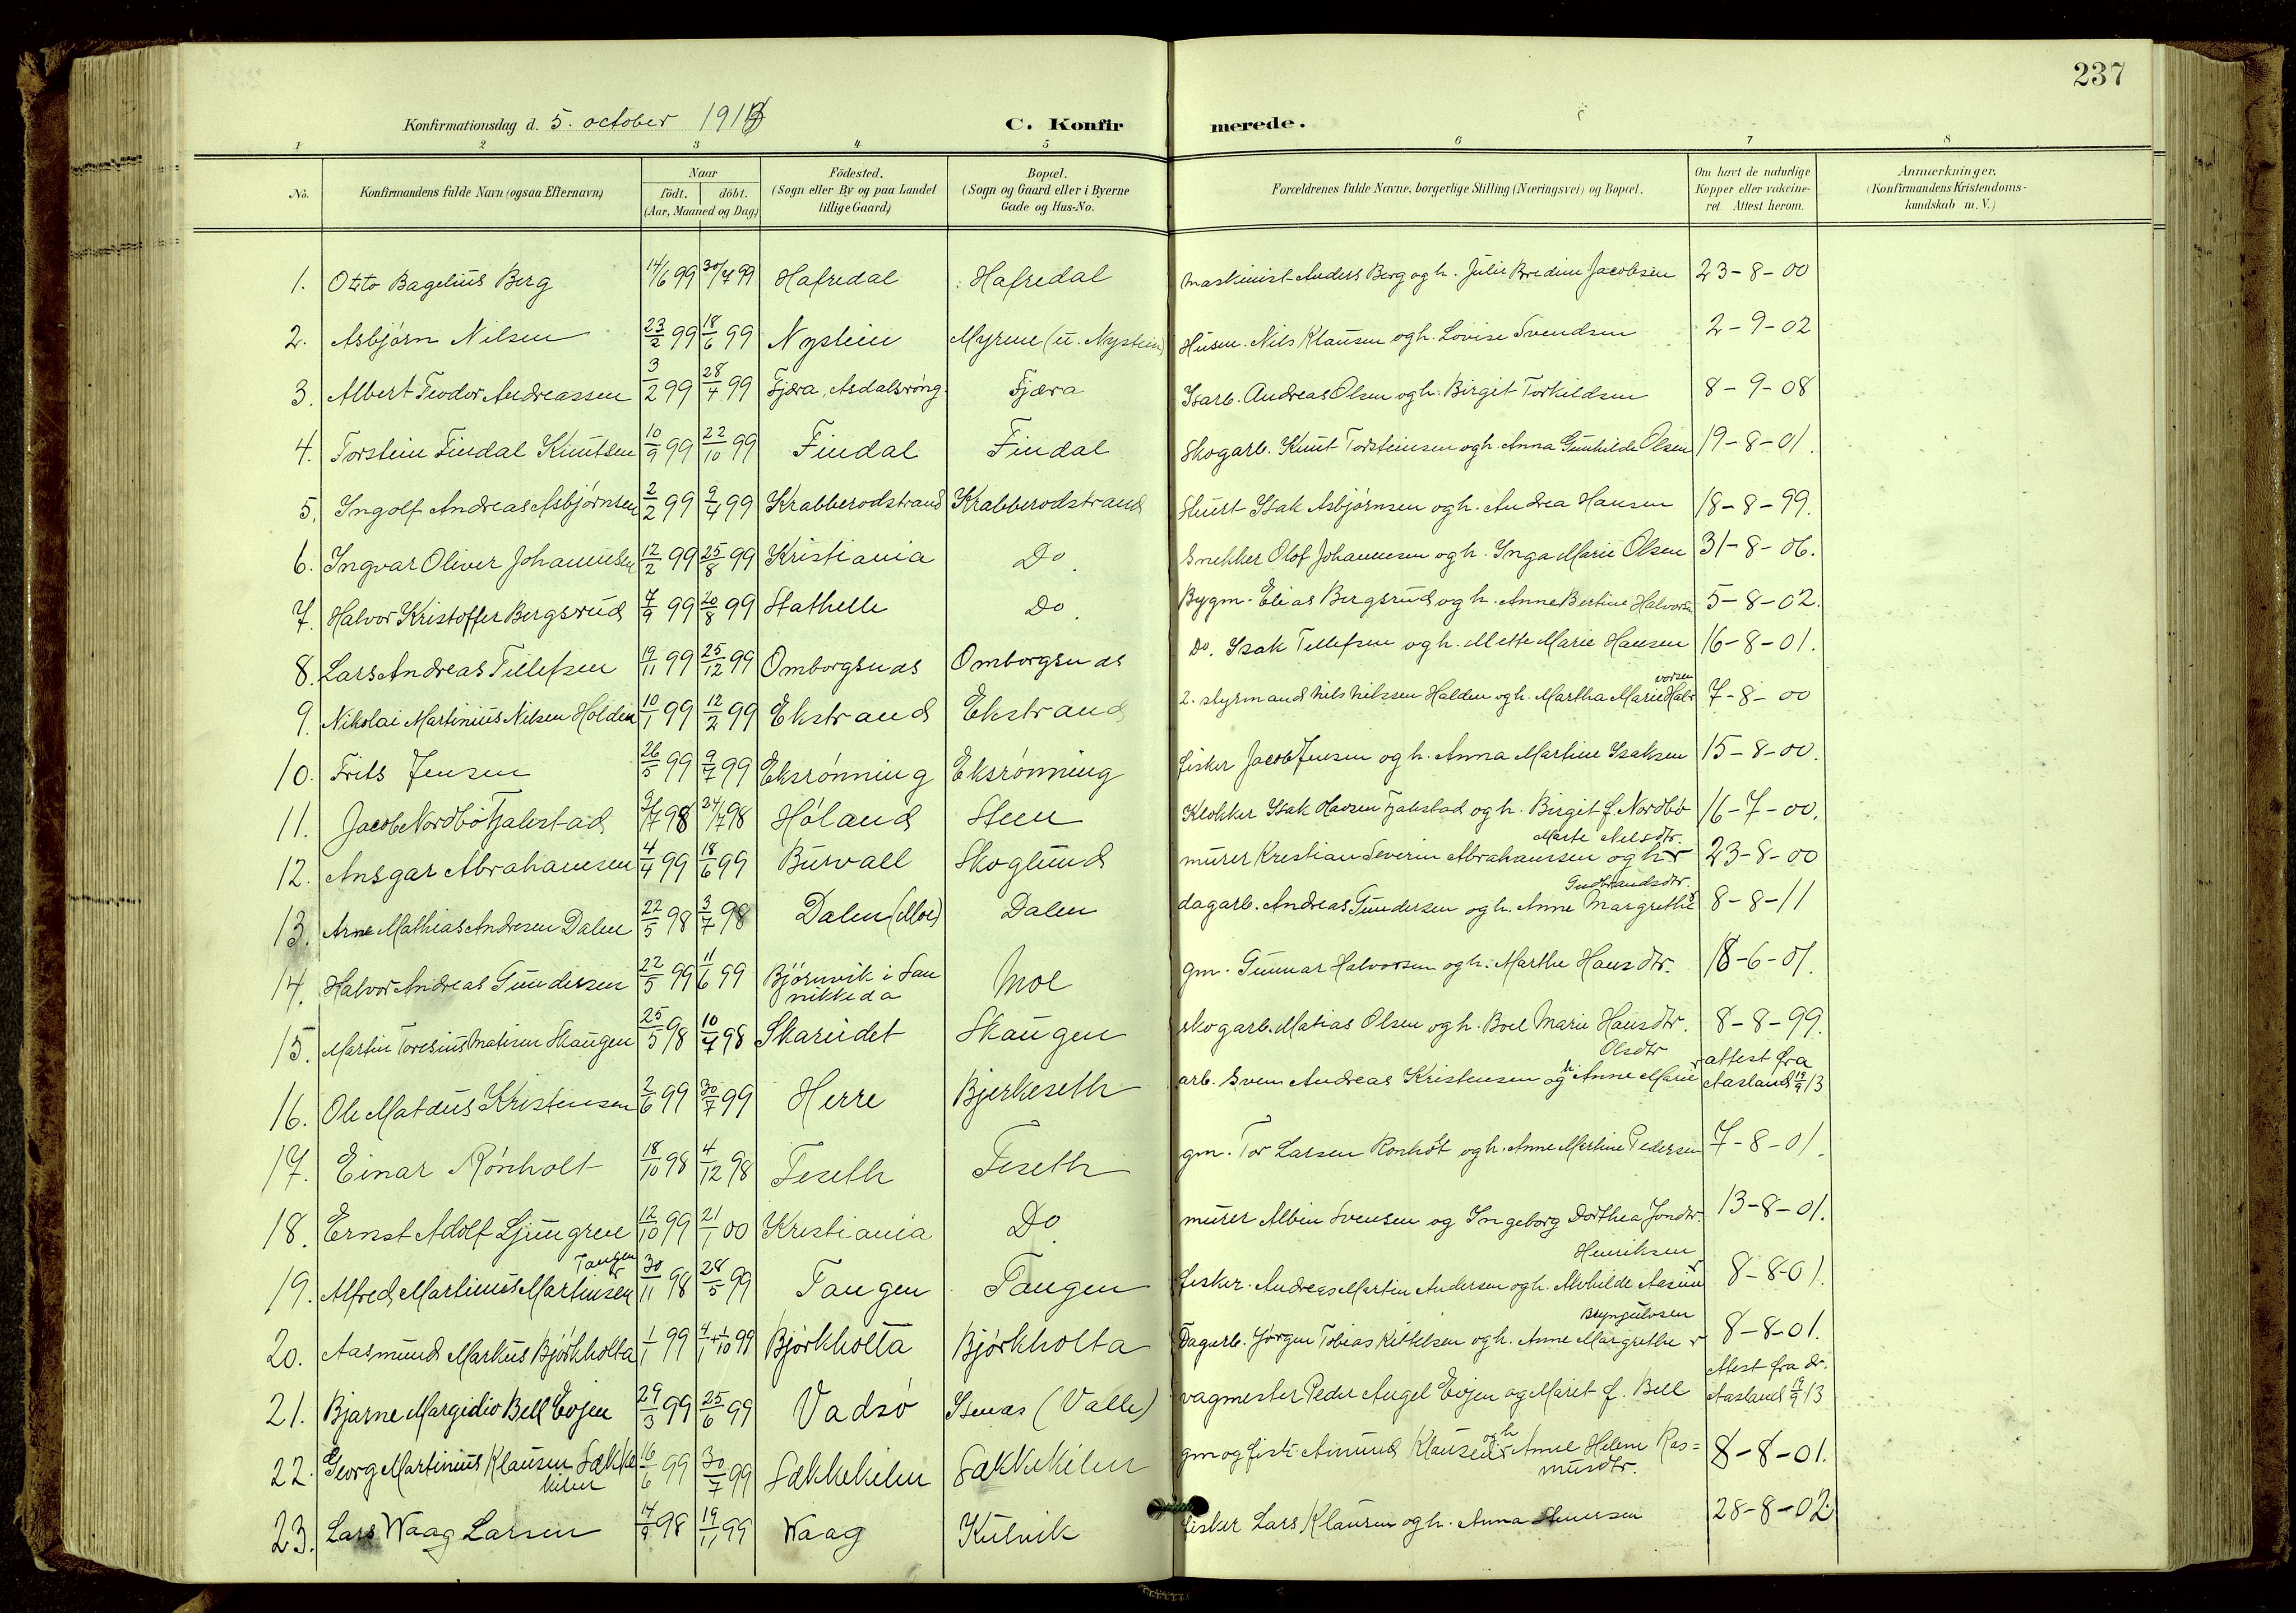 237
Konfirmationsdag d. 5. october 1913
C. Konfirmerede.
1 2 3 4 5 6 7 8
No.
Konfirmandens fulde Navn (ogsaa Efternavn)
Naar
födt. döbt.
(Aar, Maaned og Dag)
Födested.
(Sogn eller By og paa Landet
tillige Gaard)
Bopæl.
(Sogn og Gaard eller i Byerne
Gade og Hus-No.
Forældrenes fulde Navne, borgerlige Stilling (Næringsvei) og Bopæl.
Om havt de naturlige
Kopper eller vakcine-
ret Attest herom.
Anmærkninger,
(Konfirmandens Kristendoms-
kundskab m. V.)
1. Otto Bagelius Berg 14/6 99 30/7 99 Hafredal Hafredal Maskinist Anders Berg og h. Julie Bredine Jacobsen 23-8-00
2. Asbjørn Nilsen 23/2 99 18/6 99 Nystein Myrene (u. Nystein) Husm. Nils Klausen og h. Lovise Svendsen 2-9-02
3. Albert Teodor Andreassen 3/2 99 28/4 99 Fjæra, Asdalsrøng. Fjæra Isarb. Andreas Olsen og h. Birgit Torkildsen 8-9-08
4. Torstein Findal Knutsen 10/9 99 22/10 99 Findal Findal Skogarb. Knut Torsteinsen og h. Anna Gunhilde Olsen 19-8-01.
5. Ingolf Andreas Asbjørnsen 2/2 99 9/4 99 Krabberodstrand Krabberodstrand Stuert Isak Asbjørnsen og h. Andrea Hansen 18-8-99.
6. Ingvar Oliver Johannesen 12/2 99 25/8 99 Kristiania Do. Snekker Olof Johannesen og h. Inga Marie Olsen 31-8-06.
7. Halvor Kristoffer Bergsrud 7/9 99 20/8 99 Stathelle Do. Bygm. Elias Bergsrud og h. Anne Bertine Halvorsn 5-8-02.
8. Lars Andreas Tellefsen 19/11 99 25/12 99 Omborgsnæs Omborgsnæs Do. Isak Tellefsen og h. Mette Marie Hansen 16-8-01.
9. Nikolai Martinius Nilsen Holden 10/1 99 12/2 99 Ekstrand Ekstrand 2. styrmand Nils Nilssen Halden og h. Martha Marie Halvorsen 7-8-00
10. Frits Jensen 26/5 99 9/7 99 Eksrønning Eksrønning fisker Jacob Jensen og h. Anna Martine Isaksen 15-8-00.
11. Jacob Nordbø Tjalestad 98 24/7 98 Høland Steen Klokker Isak Hansen Tjalestad og h. Birgit f. Nordbø 16-7-00.
12. Ansgar Abrahamsen 4/4 99 18/6 99 Burvall Skoglund murer Kristian Severin Abrahamsen og h. Marte Nilsdtr. 23-8-00
13. Arne Mathias Andresen Dalen 22/5 98 3/7 98 Dalen (Moe) Dalen dagarb. Andreas Gundersen og h. Anne Margrethe Gudbrandsdtr. 8-8-11
14. Halvor Andreas Gundersen 22/5 99 11/6 99 Bjørnvik i San
nikkeda Moe gm. Gunnar Halvorsen og h. Marthe Hansdtr. 18-6-01.
15. Martin Toresius Matisen Skaugen 25/5 98 10/7 98 Skarudet Skaugen skogarb. Matias Olsen og h. Boel Marie Hansdtr. 8-8-99.
16. Ole Mateus Kristensen 2/6 99 30/7 99 Herre Bjerkeseth arb. Sven Andreas Kristensen og h. Anne Marie Olsdtr attest fra
Aasland 19/9 13
17. Einar Rønholt 18/10 98 4/12 98 Feseth Feseth gm. Tor Larsen Ronholt og h. Anne Martine Pedersen 7-8-01.
18. Ernst Adolf Ljungren 12/10 99 21/1 00 Kristiania Do. murer Albin Svensen og Ingeborg Dorthea Jonsdtr. 13-8-01.
19. Alfred Martinius Martinsen Tangen 30/11 98 28/5 99 Tangen Tangen fisker. Andreas Martin Andersen og h. Alvhilde Aasine Henriksen 8-8-01.
20. Aasmund Markus Bjørkholta 1/1 99 4/1 + 1/10 99 Bjørkholta Bjørkholta Dagarb. Jørgen Tobias Kittelsen og h. Anne Margrethe Bryngulvsen 8-8-01.
21. Bjarne Margidio Bell Evjen 29/3 99 25/6 99 Vadsø Stenas (Valle) vagmester Peder Angel Evjen og Maret f. Bell Attest fra dr.
Aasland 19/9 13
22. Georg Martinius Klausen Sække
kilen 16/6 99 30/7 99 Sækkekilen Sækkekilen gm og fisk. Amund Klausen og h Anne Helene Ras=
musdtr. 8-8-01.
23. Lars Waag Larsen 14/9 98 19/11 99 Waag Kulvik fisker Lars Klausen og h. Anna 28-8-02